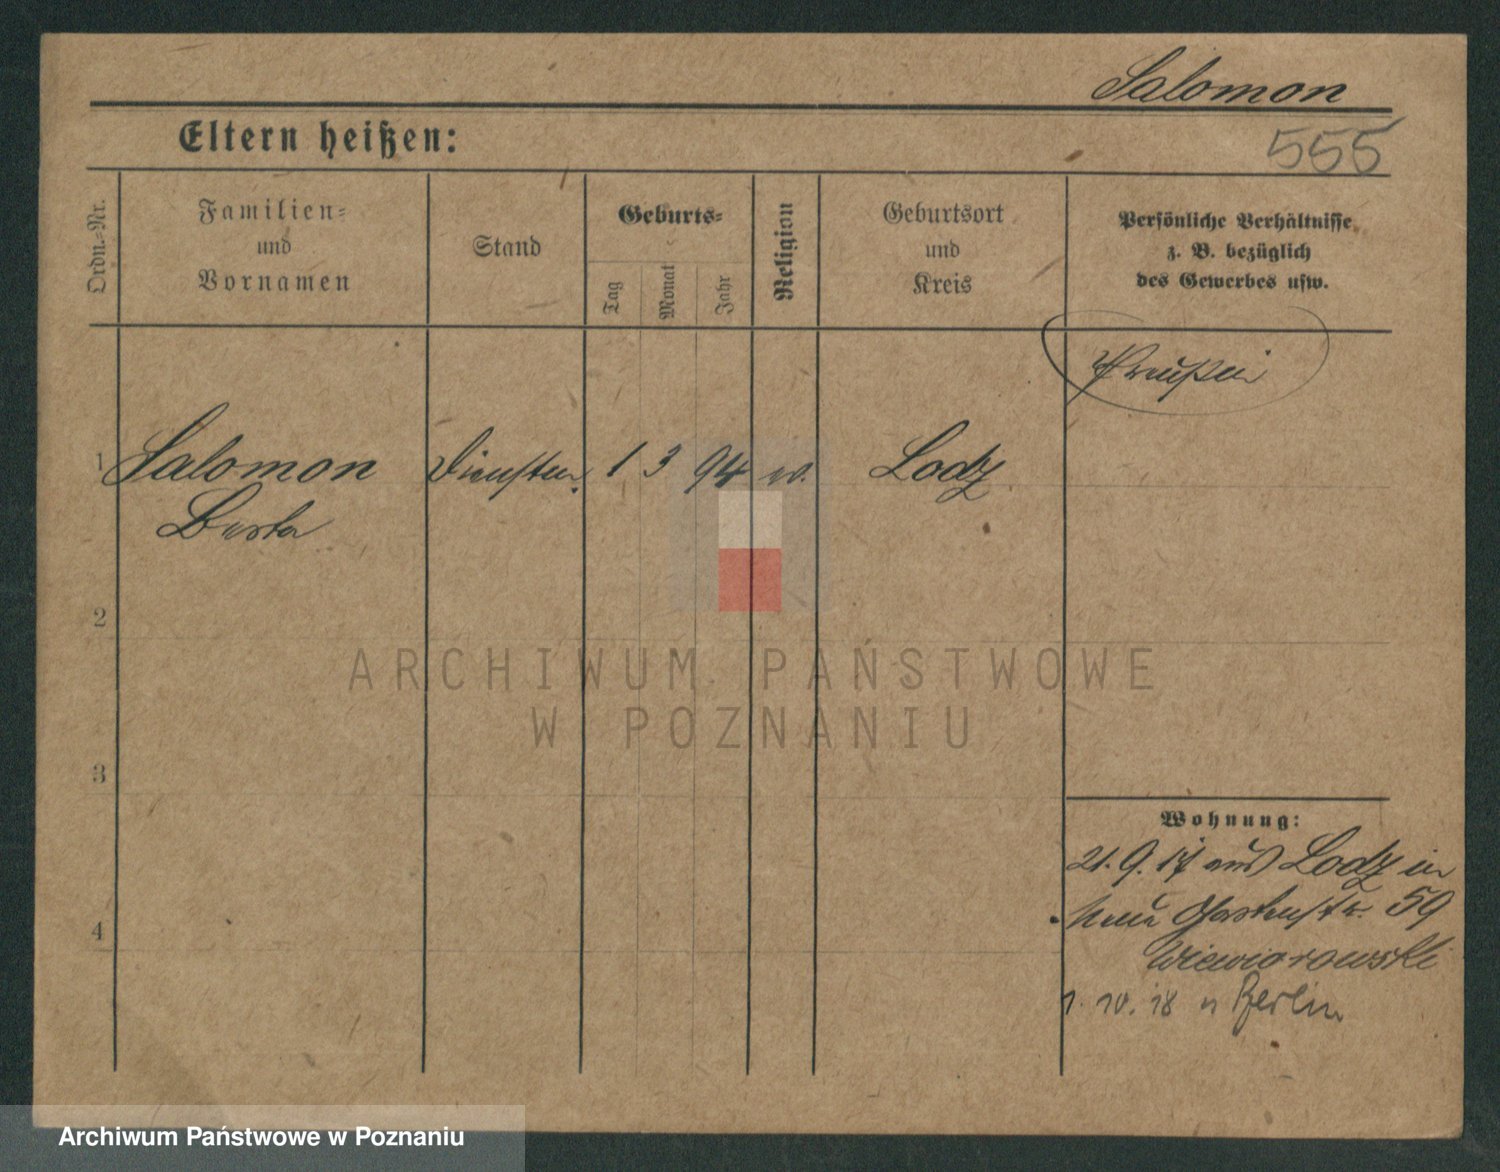 Salomon
Eltern heißen:
555
Ordn.-Nr.
Familien-
und
Vornamen
Stand
Geburts-
Tag
Monat
Jahr
Religion
Geburtsort
und
Kreis
Persönliche Verhältnisse
z. B. bezüglich
des Gewerbes usw.
Preußen
1 Salomon 1 3 94 Lodz
2
ARCHIWUM PAŃSTWOWE
W POZNANIU
3
Wohnung:
21. 9. 17 aus Lodz in
Neue Gartenstr. 59
4
Wiewiorowski
1. 10. 18 n Berlin
Archiwum Państwowe w Poznaniu